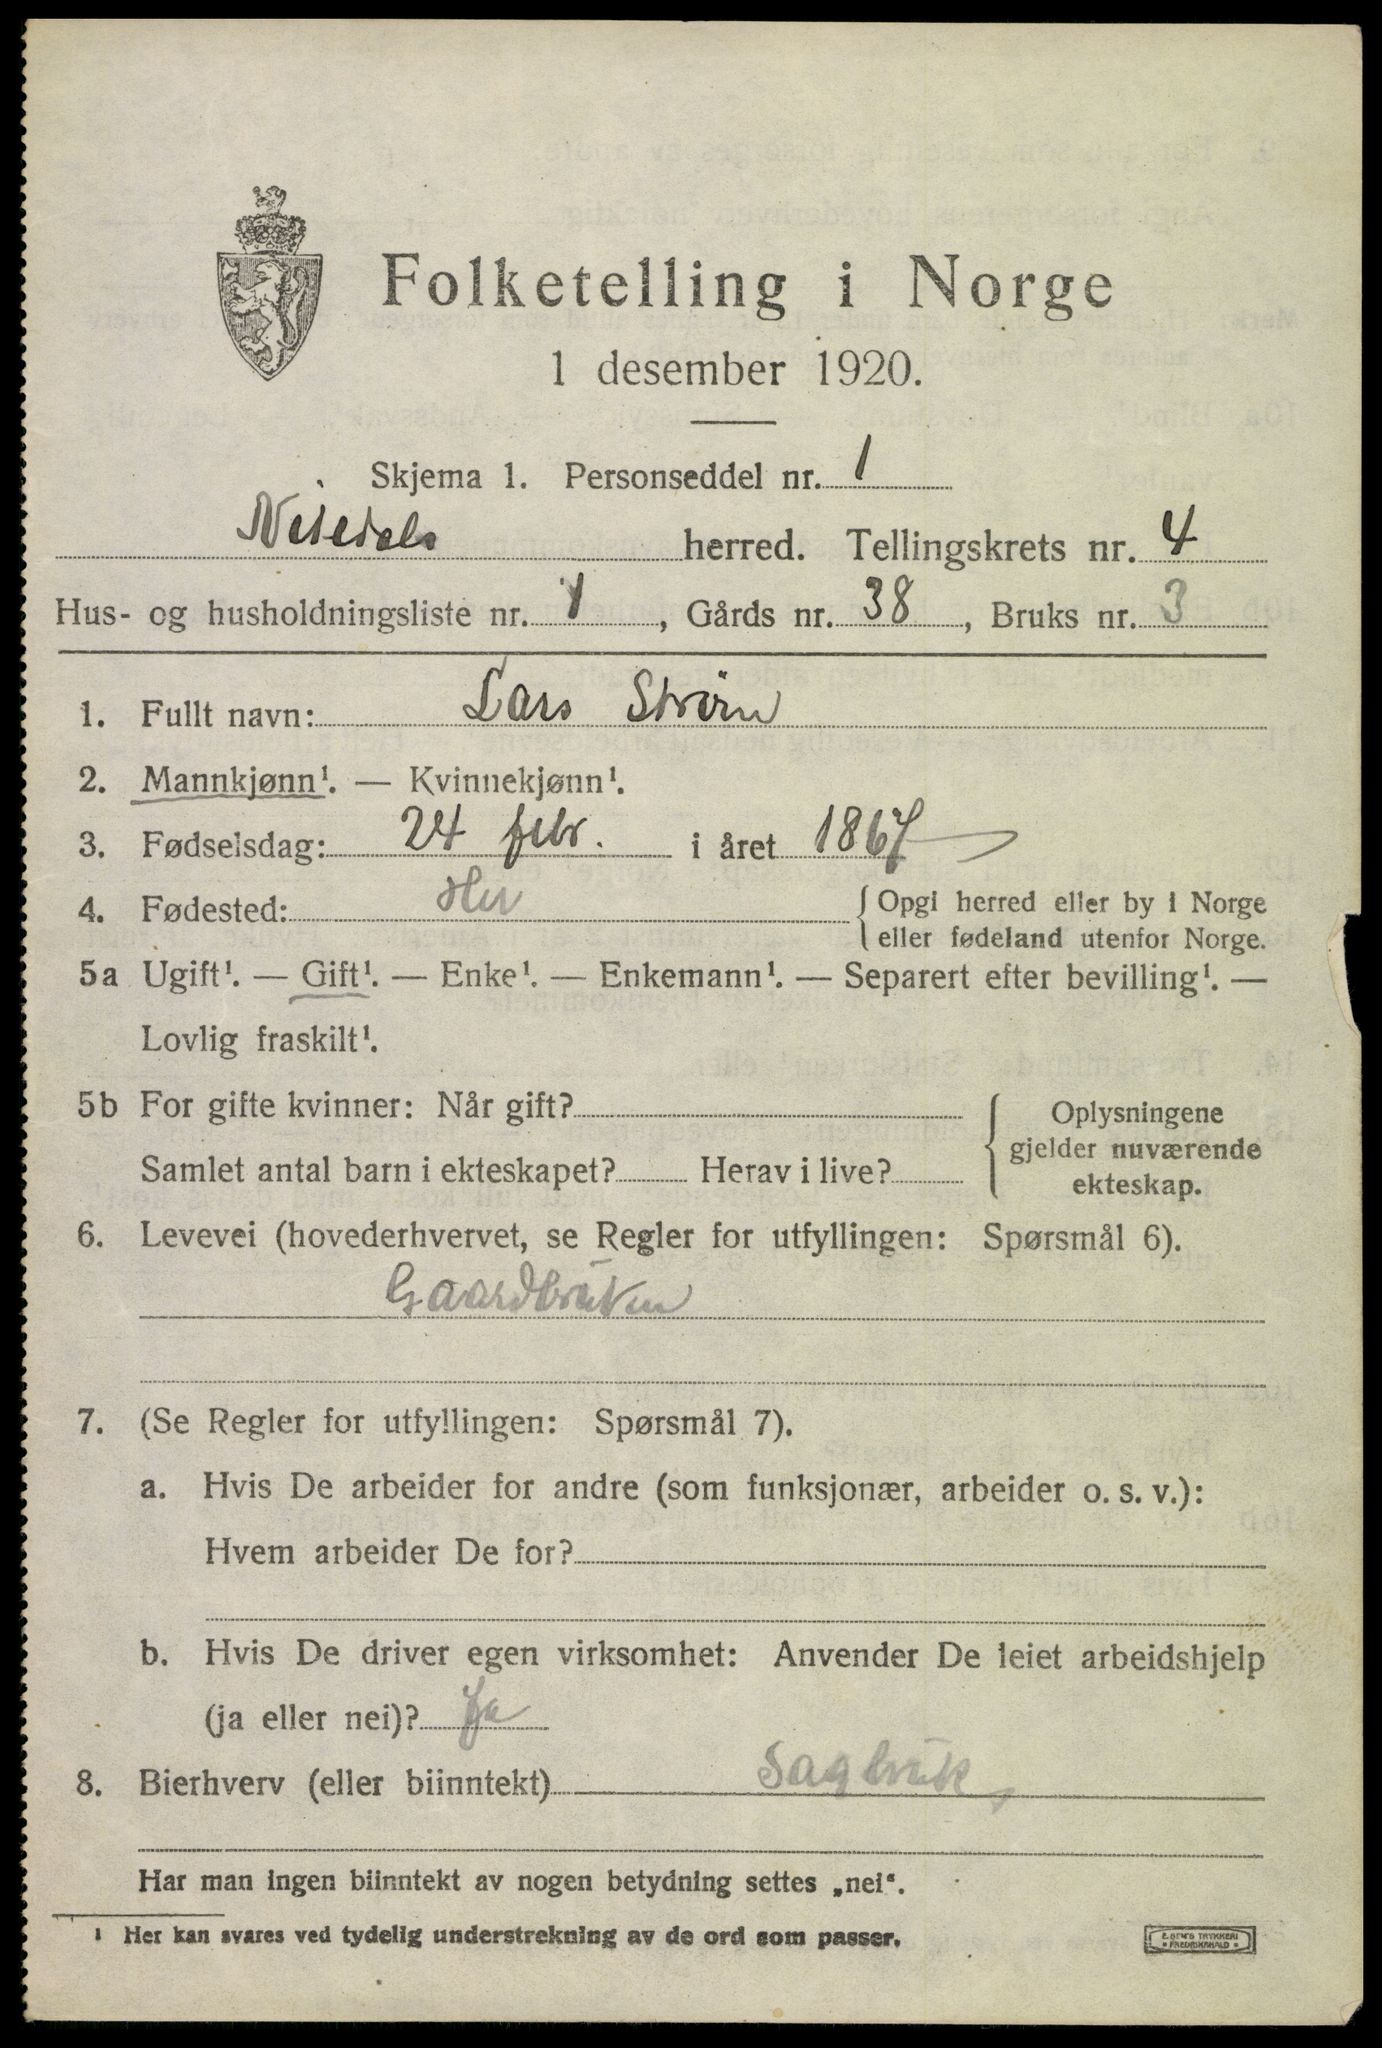 Folketelling i Norge
1 desember 1920.
Skjema 1. Personseddel nr. 1
herred. Tellingskrets nr. 4
Hus- og husholdningsliste nr. 1, Gårds nr. 38, Bruks nr. 3
1. Fullt navn: Lars Strøm
2. Mannkjønn¹. — Kvinnekjønn¹.
3. Fødselsdag: 24 febr. i året 1867
4. Fødested: Her {Opgi herred eller by i Norge
eller fødeland utenfor Norge.
5a Ugift¹. — Gift¹. — Enke¹. — Enkemann¹. — Separert efter bevilling¹. —
Lovlig fraskilt¹.
5b For gifte kvinner: Når gift?
Samlet antal barn i ekteskapet? Herav i live?
{Oplysningene
gjelder nuværende
ekteskap.
6. Levevei (hovederhvervet, se Regler for utfyllingen: Spørsmål 6).
Gaardbruker
7. (Se Regler for utfyllingen: Spørsmål 7).
a. Hvis De arbeider for andre (som funksjonær, arbeider o. s. v.):
Hvem arbeider De for?
b. Hvis De driver egen virksomhet: Anvender De leiet arbeidshjelp
(ja eller nei)? Ja
8. Bierhverv (eller biinntekt) Sagbruk
Har man ingen biinntekt av nogen betydning settes „nei“.
¹ Her kan svares ved tydelig understrekning av de ord som passer.
E. SEM'S TRYKKERI
• FREDRIKSHALD •